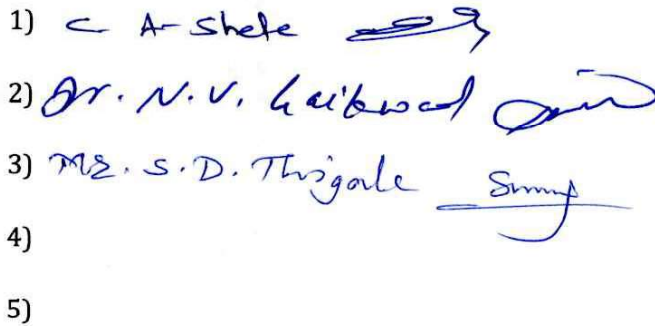 1) C A Shete
2) Dr. N. V. Gaikwad
3) Mr. S. D. Thigale
4)
5)